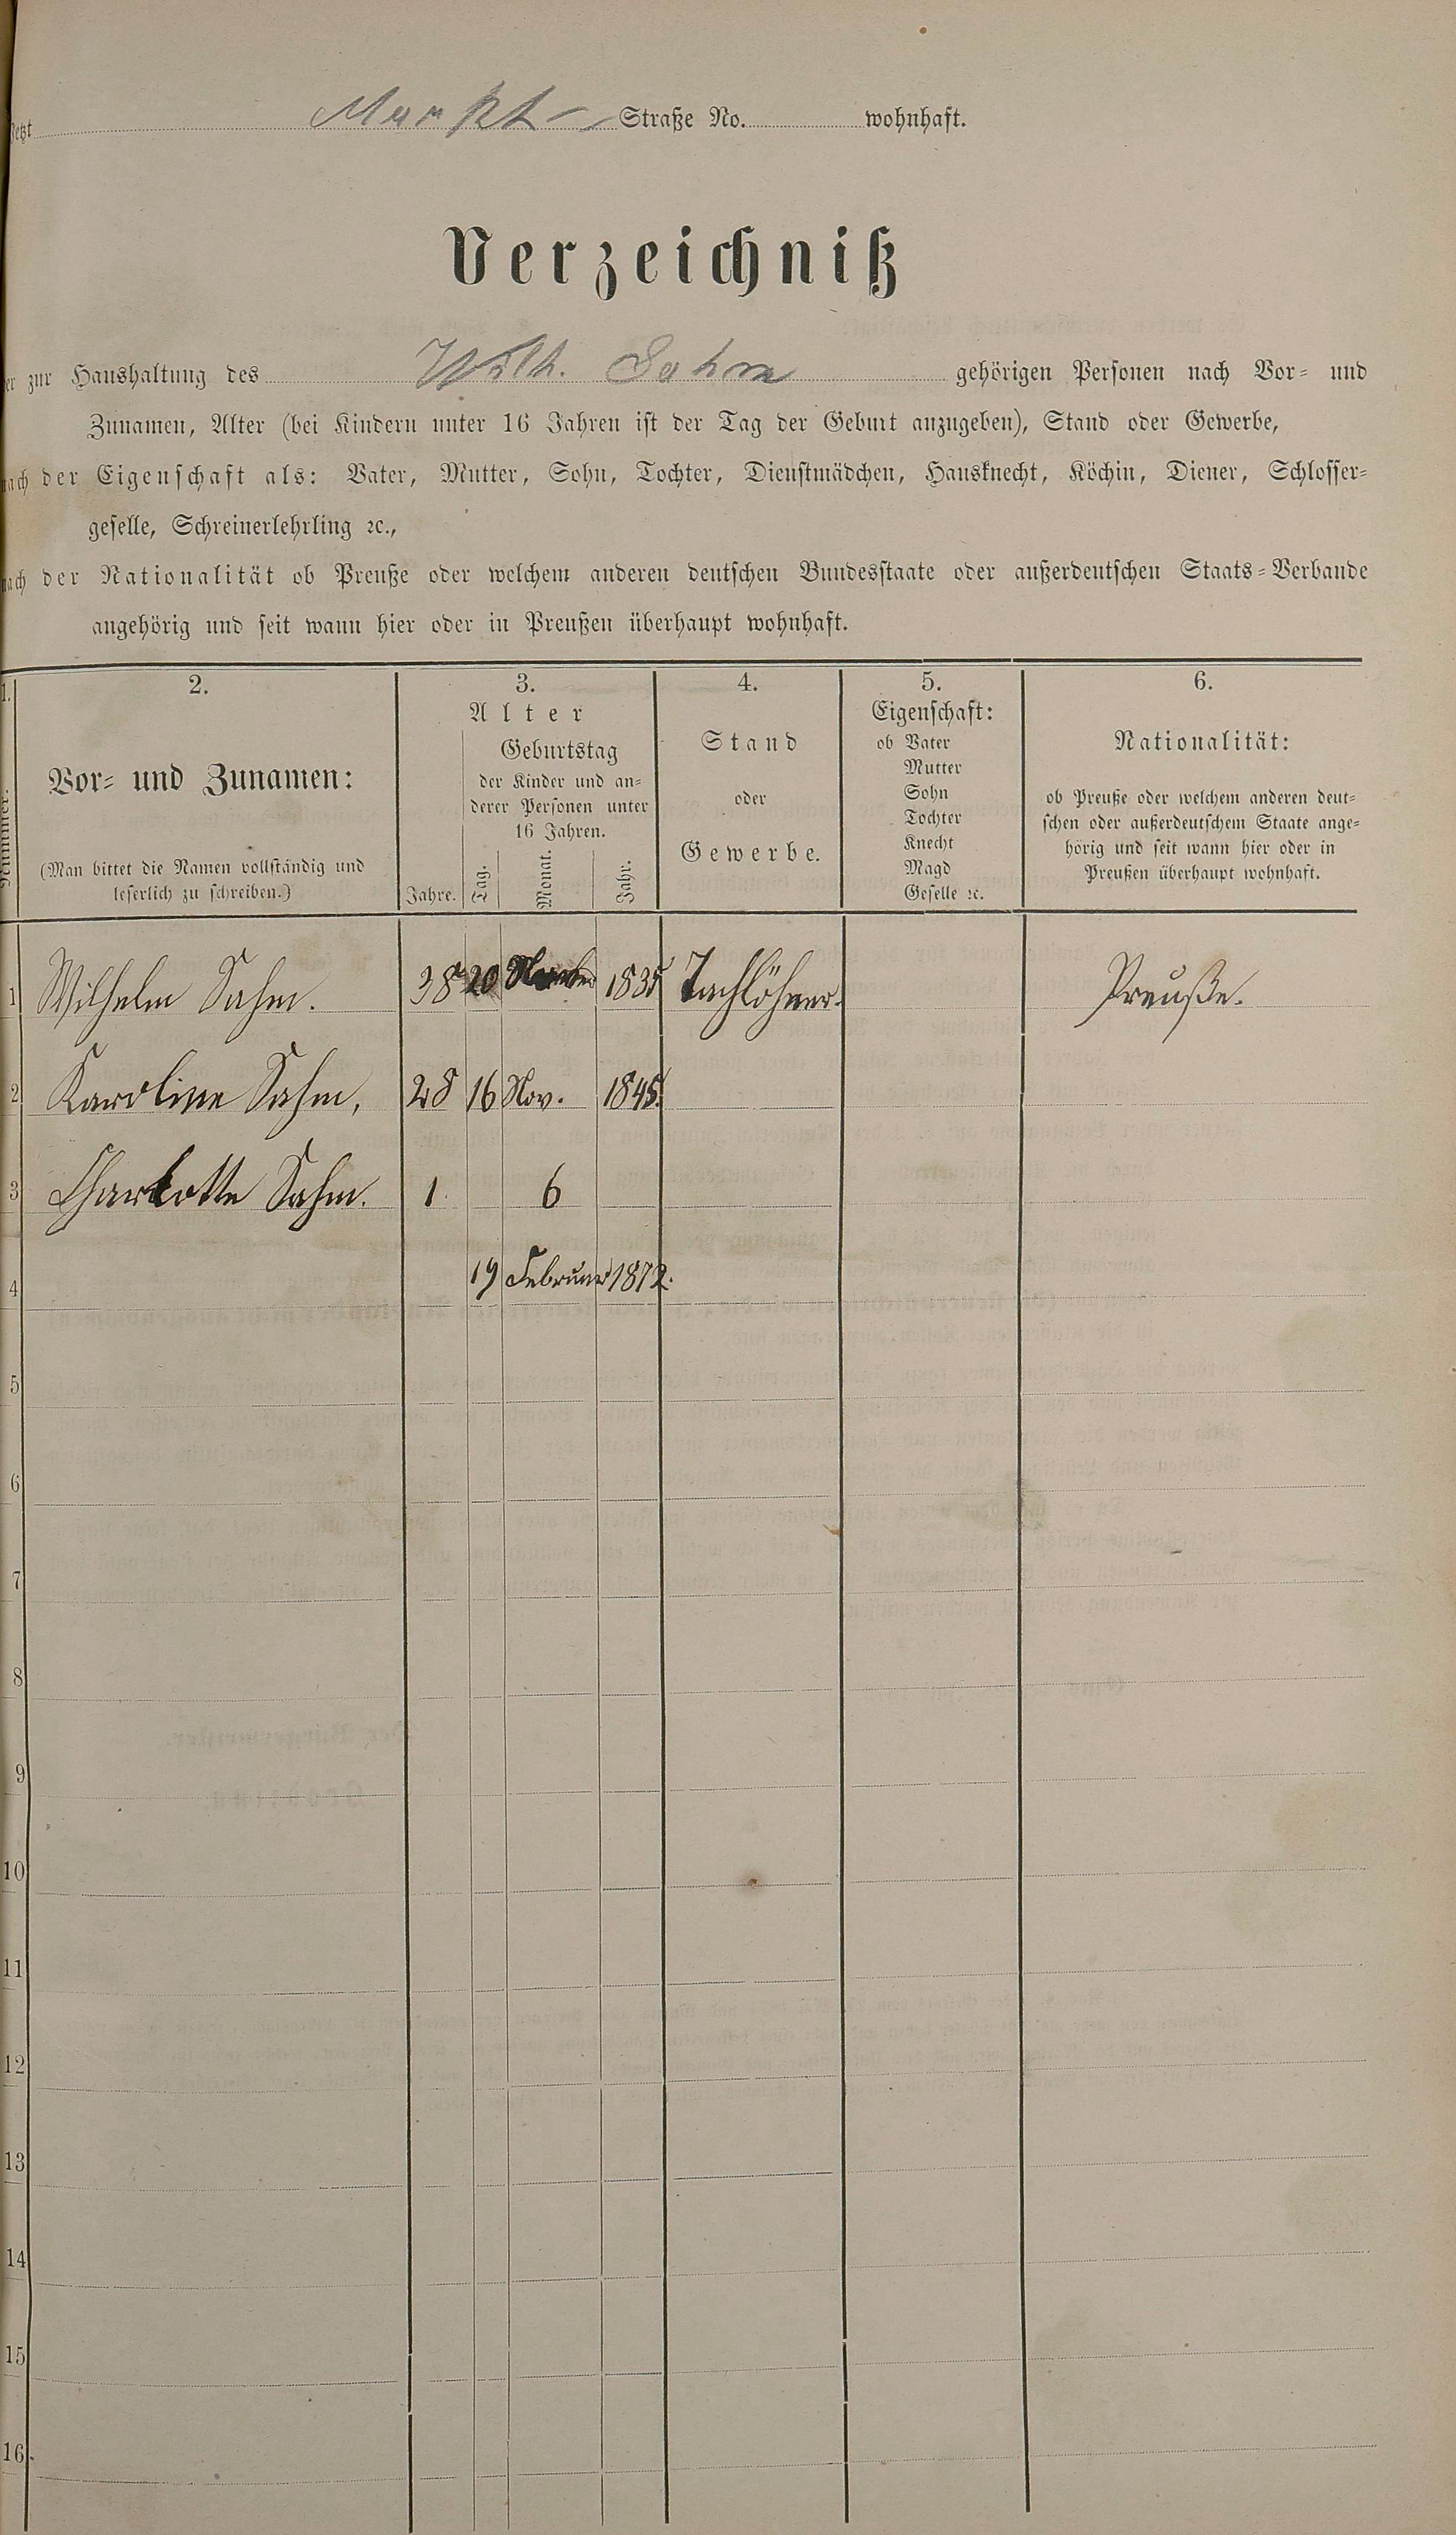 Markt- Straße No. wohnhaft.
Verzeichniß
zur Haushaltung des Wilh. Sahm gehörigen Personen nach Vor- und
Zunamen, Alter (bei Kindern unter 16 Jahren ist der Tag der Geburt anzugeben), Stand oder Gewerbe,
nach der Eigenschaft als: Vater, Mutter, Sohn, Tochter, Dienstmädchen, Hausknecht, Köchin, Diener, Schlosser-
geselle, Schreinerlehrling ꝛc.,
nach der Nationalität ob Preuße oder welchem anderen deutschen Bundesstaate oder außerdeutschen Staats-Verbande
angehörig und seit wann hier oder in Preußen überhaupt wohnhaft.
1.
Nummer.
2.
Vor- und Zunamen:
(Man bittet die Namen vollständig und
leserlich zu schreiben.)
3.
Alter
Jahre.
Geburtstag
der Kinder und an-
derer Personen unter
16 Jahren.
Tag.
Monat.
Jahr.
4.
Stand
oder
Gewerbe.
5.
Eigenschaft:
ob Vater
Mutter
Sohn
Tochter
Knecht
Magd
Geselle ꝛc.
6.
Nationalität:
ob Preuße oder welchem anderen deut-
schen oder außerdeutschem Staate ange-
hörig und seit wann hier oder in
Preußen überhaupt wohnhaft.
1 Wilhelm Sahm. 38 20 1835 Tachlöhner. Preuße.
2 Karoline Sahm, 28 16 Nov. 1845.
3 Charlotte Sahm. 1. 6
4 19 Februar 1872.
5
6
7
8
9
10
11
12
13
14
15
16.